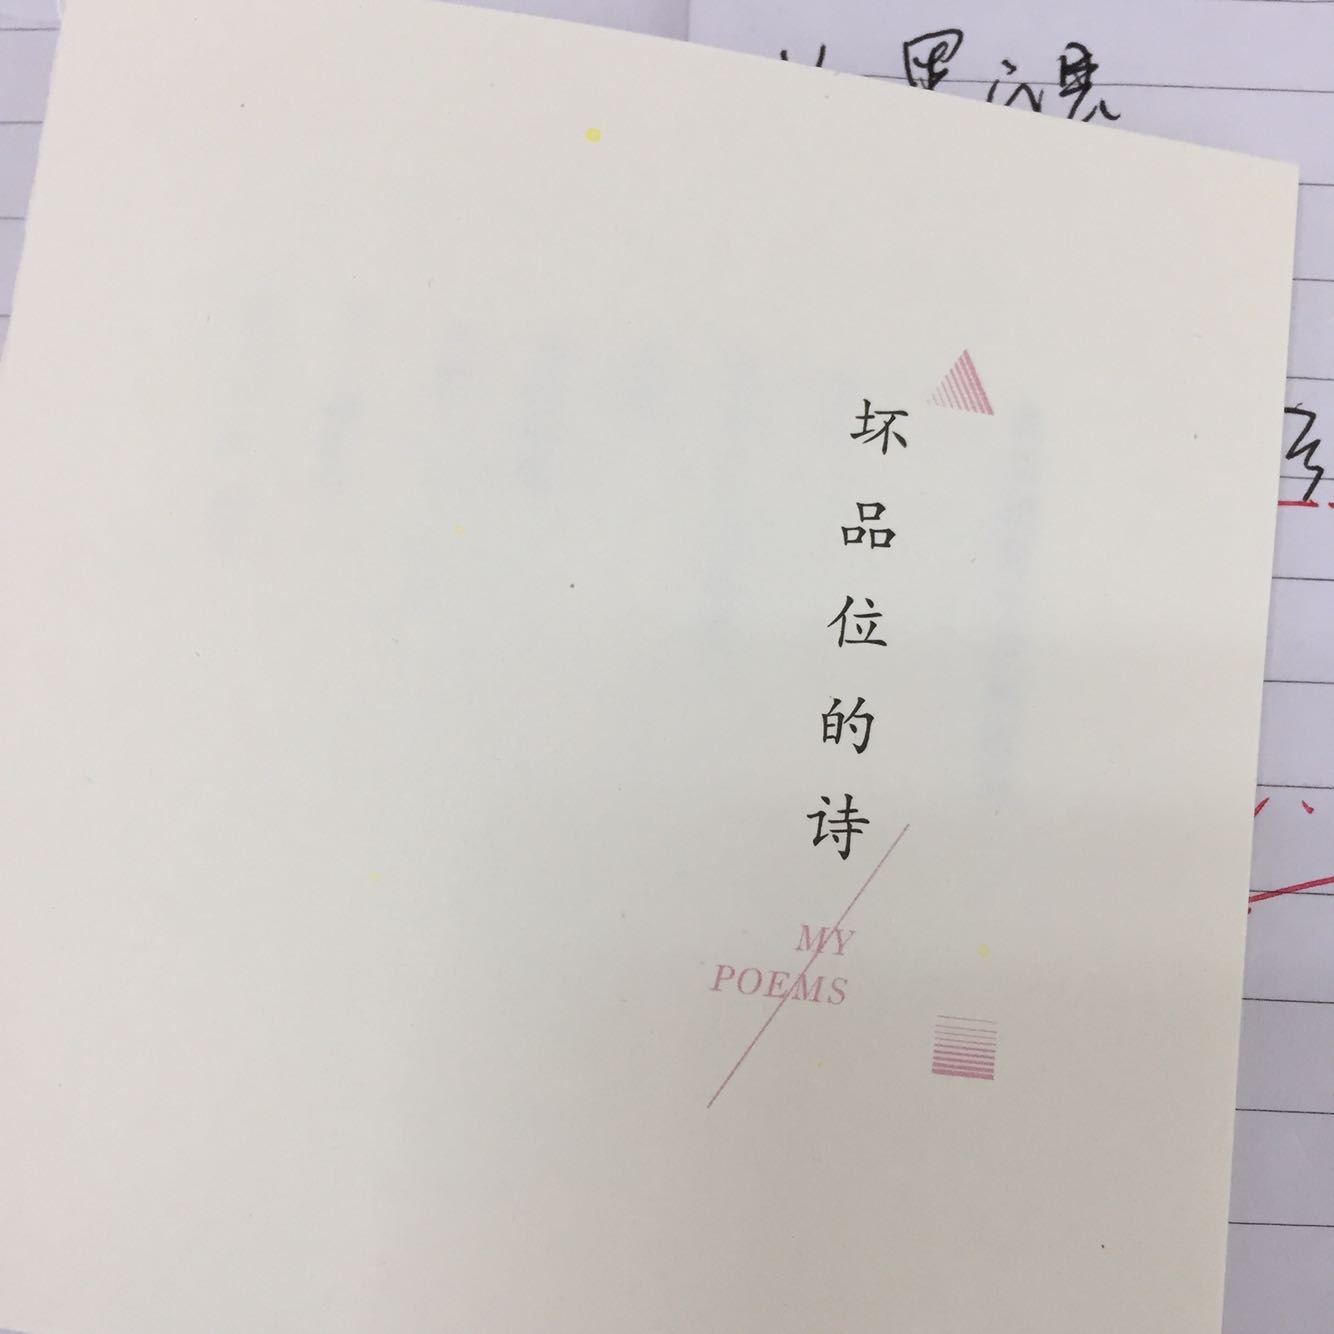 坏品位的诗
MY
POEMS